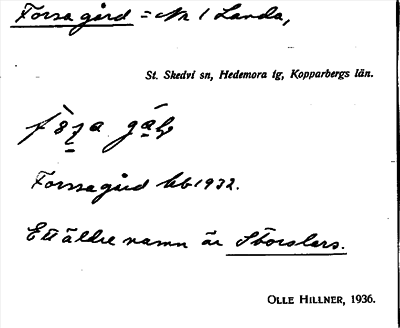 Forsa gård = No 1 Landa,
St. Skedvi sn, Hedemora tg, Kopparbergs län.
Forssagård kb 1932.
Ett äldre namn är Storslars.
OLLE HILLNER, 1936.